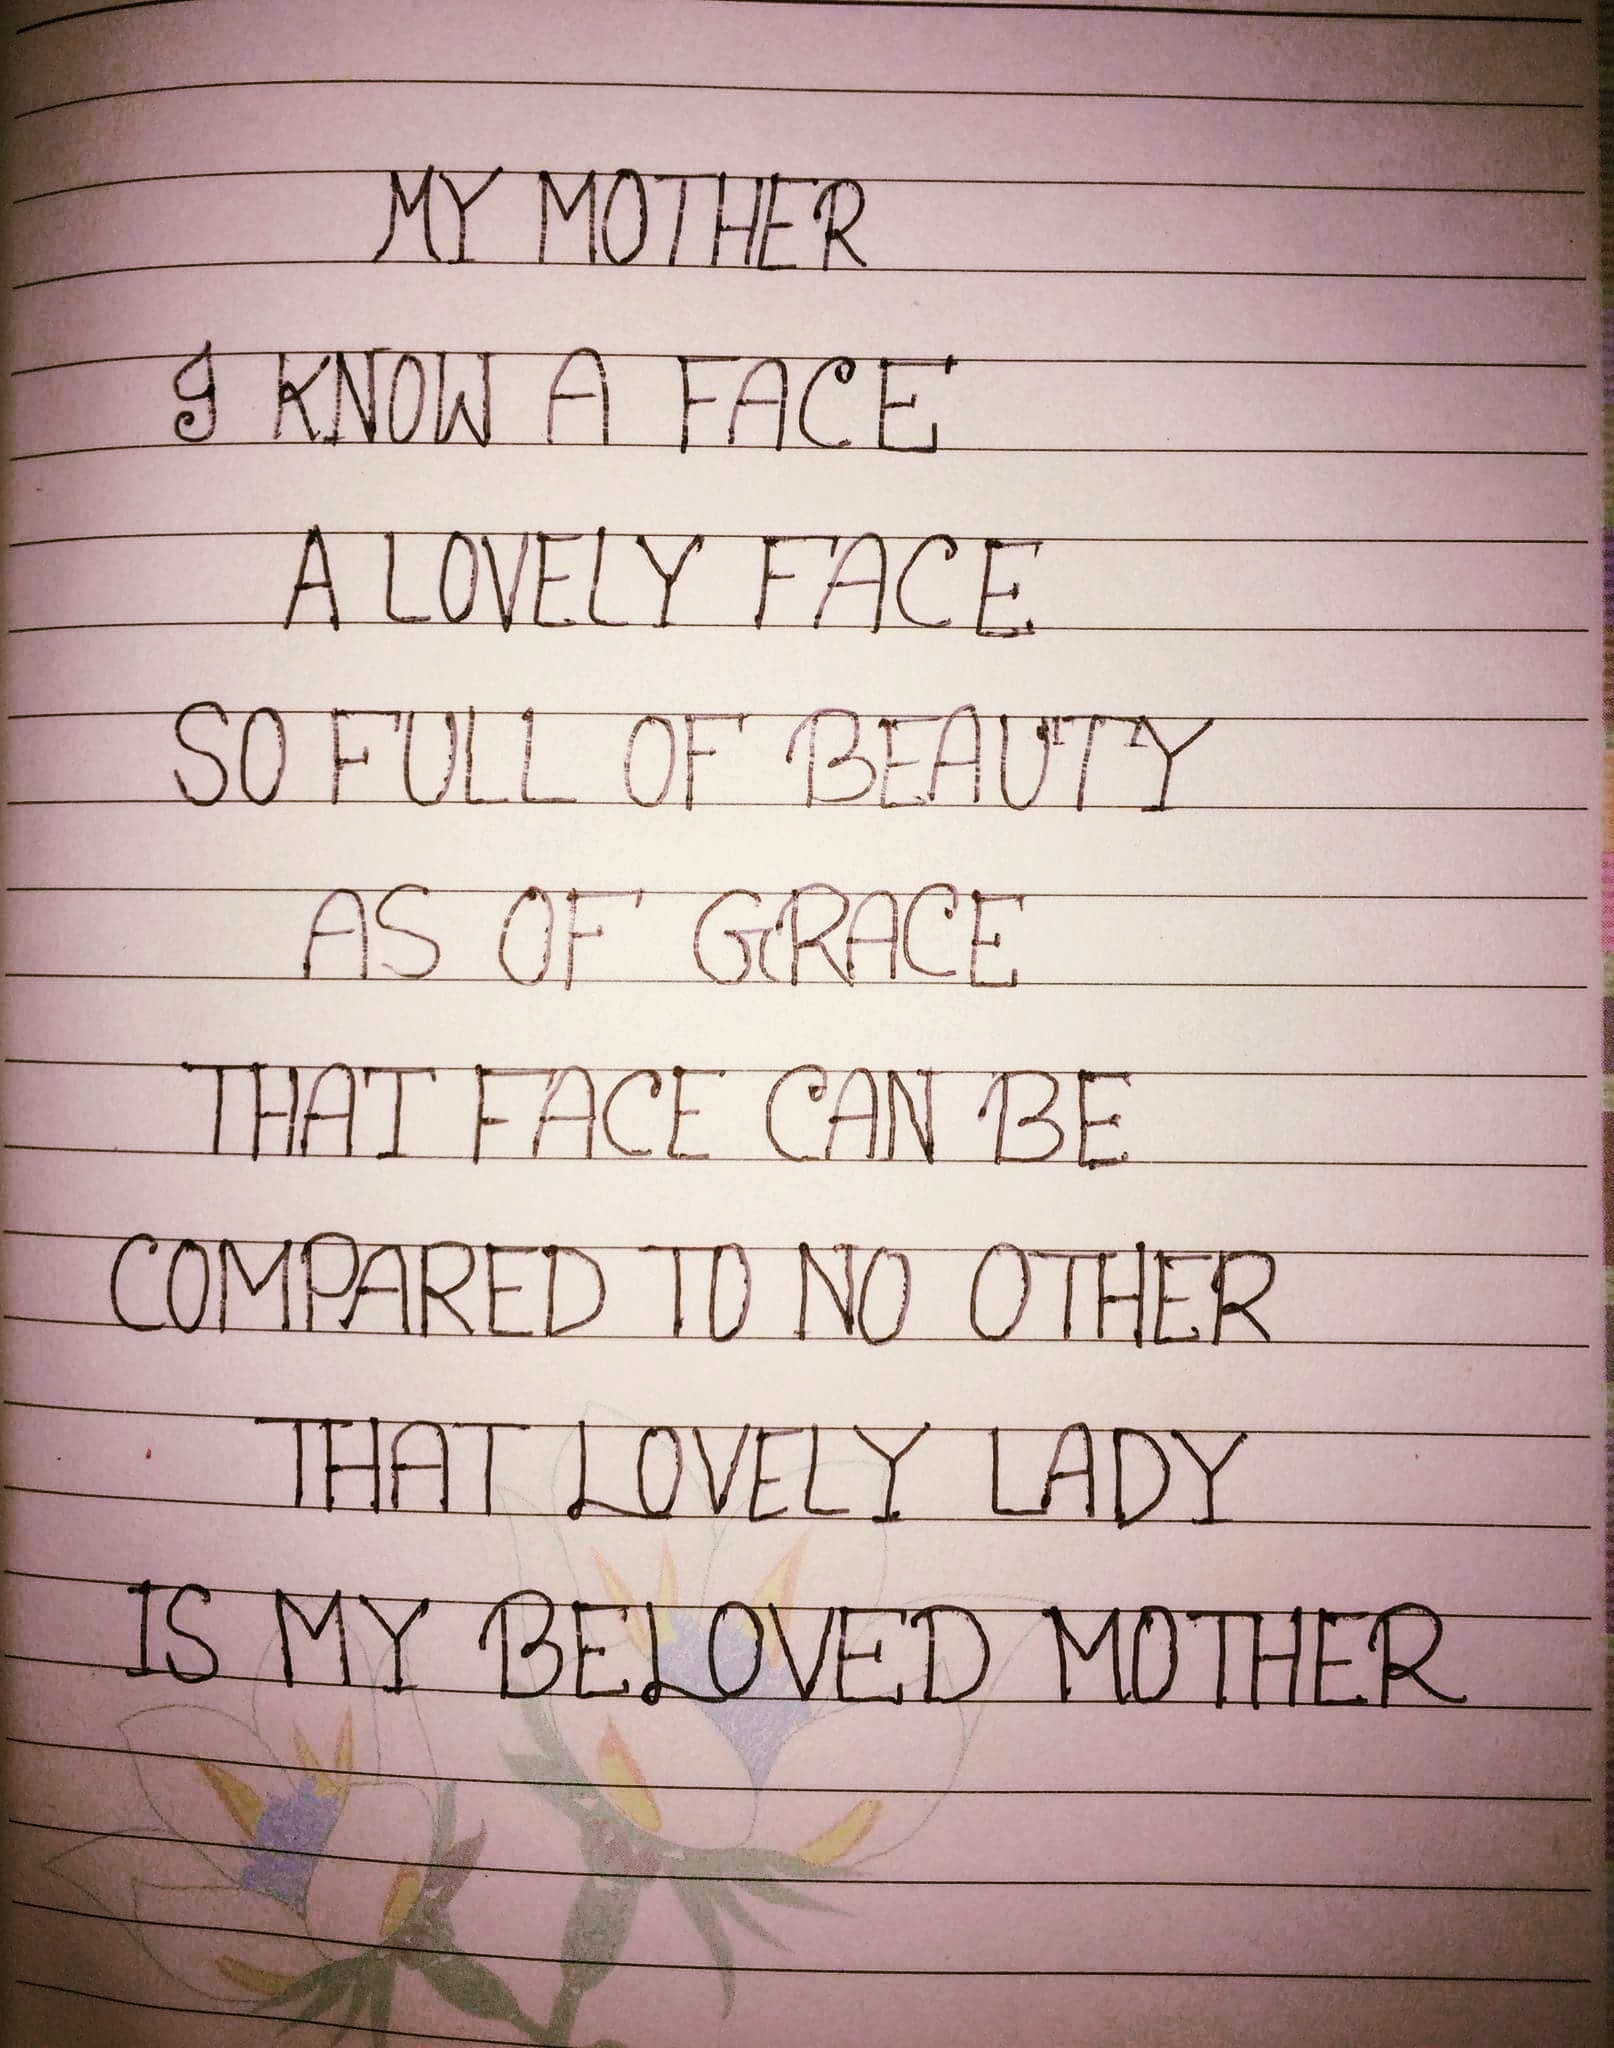 MY MOTHER
I KNOW A FACE
A LOVELY FACE
SO FULL OF BEAUTY
AS OF GRACE
THAT FACE CAN BE
COMPARED TO NO OTHER
THAT LOVELY LADY
IS MY BELOVED MOTHER